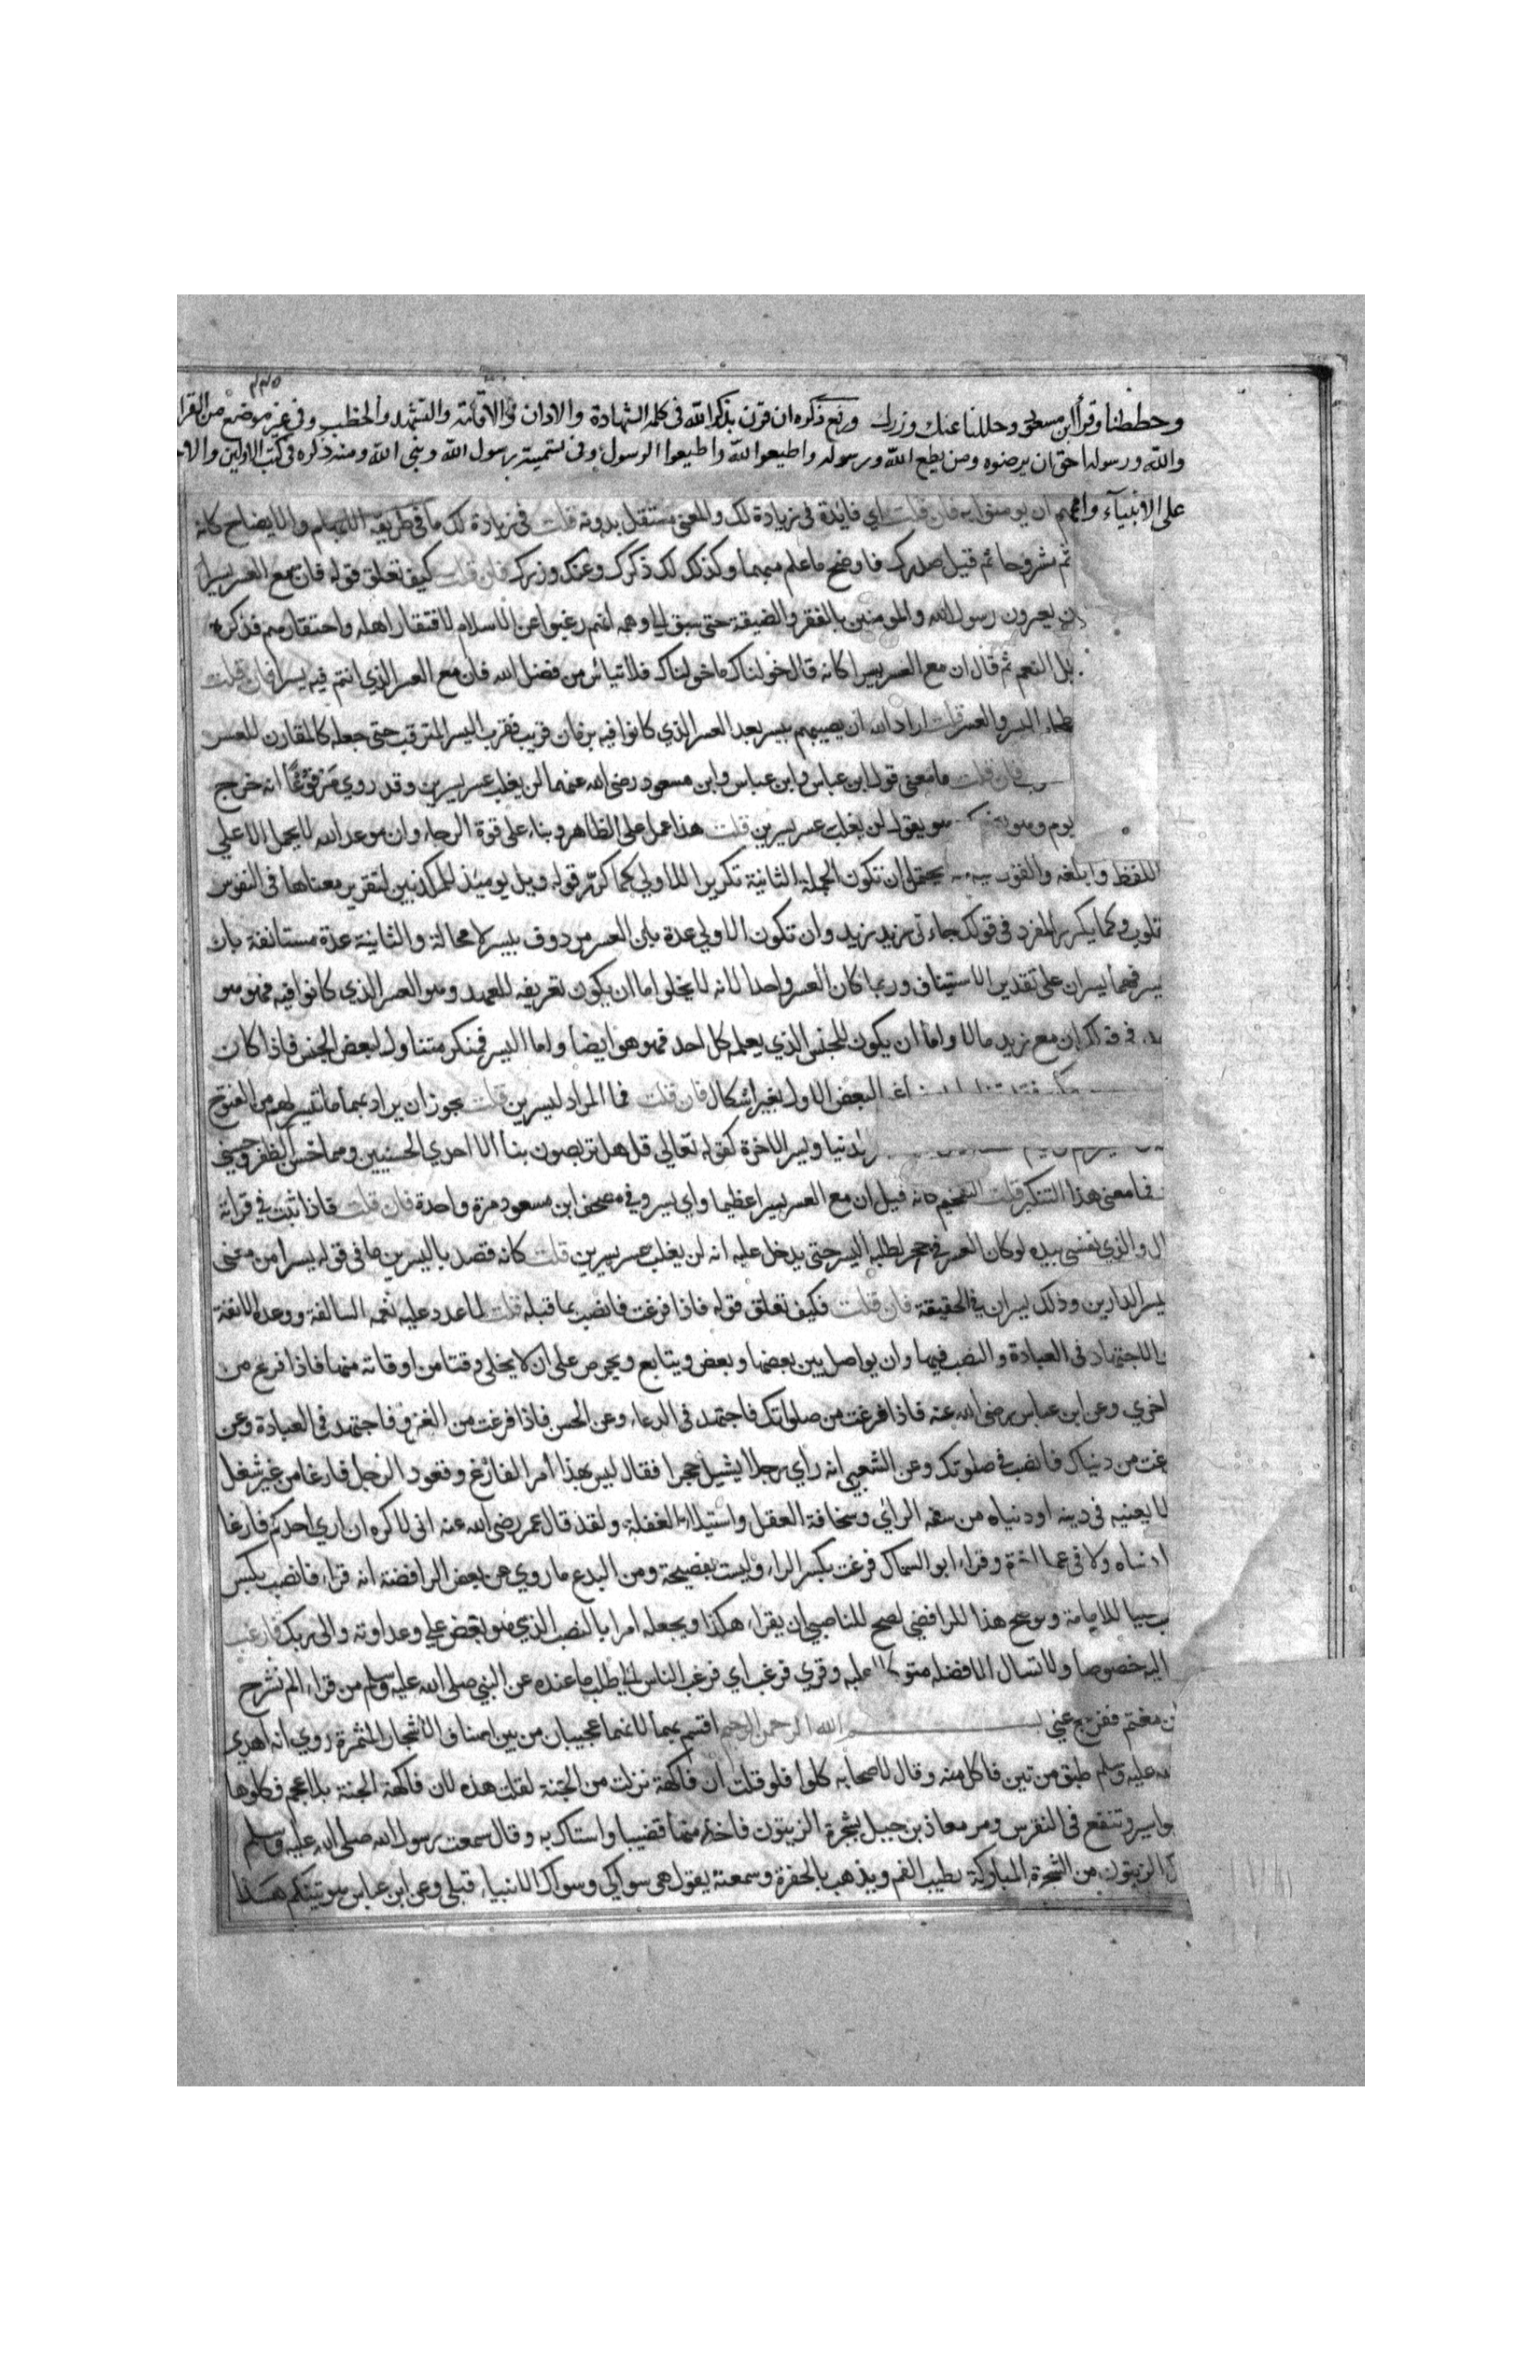 ٣٣٥
وحططنا وقرأ ابن مسعود وحللنا عنك وزرك ورفع ذكره ان قرن بذكر الله في كلمه الشهادة والاذان والاقامة والتشهد والخطب وفي غير موضع من القرا
والله ورسوله احق ان يرضوه ومن يطع الله ورسوله واطيعوا الله واطيعوا الرسول وفي تسميته رسول الله ونبي الله ومنه ذكره في كتب الاولين والاخ
على الانبيآء واممهم ان يومنوا به فان قلت اي فايدة في زيادة لك والمعنى مستقل بدونه قلت في زيادة لك ما في طريقة الابهام والايضاح كانه
ثم مشروحا ثم قيل صدرك فاوضح ما علم مبهما وكذلك لك ذكرك وعنك وزرك فان قلت كيف تعلق قوله فان مع العسر يسرا
يعيرون رسول الله والمومنين بالفقر والضيقة حتى سبق الي وهمه انهم رغبوا عن الاسلام لافتقار اهله واحتقارهم فذكره
بل النعم ثم قال ان مع العسر يسرا كانه قال خولناك ما خولناك فلا تيائس من فضل الله فان مع العسر الذي انتم فيه يسرا فان قلت
اليسر والعسر قلت اراد الله ان يصيبهم بيسر بعد العسر الذي كانوا فيه بزمان قريب فقرب اليسر المترقب حتى جعله كالمقارن للعسر
فان قلت ما معنى قول ابن عباس وابن مسعود رضي الله عنهما لن يغلب عسر يسرين وقد روي مرفوعا انه خرج
يوم وهو يضحك وهو يقول لن يغلب عسر يسرين قلت هذا عمل على الظاهر وبناء على قوة الرجاء وان موعد الله لا يحمل الا علي
اللفظ وابلغه والقول فيه يحتمل ان تكون الجملة الثانية تكريرا للاولي كما كرر قوله ويل يوميذ للمكذبين لتقرير معناها في النفوس
قلوب وكما يكرر المفرد في قولك جاءني زيد زيد وان تكون الاولي عدة بان العسر مردوف بيسر لا محالة والثانية عدة مستانفة بان
يسر فهما يسران على تقدير الاستيناف وربما كان العسر واحدا لانه لا يخلوا اما ان يكون تعريفه للعهد وهو العسر الذي كانوا فيه فهو هو
في قولك ان مع زيد مالا واما ان يكون للجنس الذي يعلمه كل احد فهو هو ايضا واما اليسر فمنكر متناول لبعض الجنس فاذا كان
البعض الاول بغير اشكال فان قلت فما المراد ليسرين قلت يجوز ان يراد بهما ما تيسر لهم من الفتوح
الدنيا ويسر الاخرة كقوله تعالى قل هل تربصون بنا الا احدي الحسنيين وهما حسن الظفر وحسنى
فما معنى هذا التنكير قلت التفخيم كانه قيل ان مع العسر يسرا عظيما واي يسر وفي مصحف ابن مسعود مرة واحدة فان قلت فاذا ثبت في قراته
ال والذي نفسي بيده لو كان العسر في جحر لطلبه اليسر حتى يدخل عليه انه لن يغلب عسر يسرين قلت كانه قصد باليسرين ما في قوله يسرا من معنى
يسر الدارين وذلك يسران في الحقيقة فان قلت فكيف تعلق قوله فاذا فرغت فانصب بما قبله قلت لما عدد عليه نعمه السالفة ووعده الانفة
والاجتهاد في العبادة والنصب فيها وان يواصل بين بعضها وبعض ويتابع ويحرص على ان لا يخلي وقتا من اوقاته منها فاذا فرغ من
اخري وعن ابن عباس رضي الله عنه فاذا فرغت من صلواتك فاجتهد في الدعاء وعن الحسن فاذا فرغت من الغزو فاجتهد في العبادة وعن
غت من دنياك فانصب في صلوتك وعن الشعبي انه راي رجلا يشيل حجرا فقال ليس بهذا امر الفارغ وقعود الرجل فارغا من غير شغل
لا يعنيه في دينه او دنياه من سفه الراي وسخافة العقل واستيلاء الغفلة ولقد قال عمر رضي الله عنه اني لاكره ان اري احدكم فارغا
دنياه ولا في عمل اخرة وقراء ابو السماك فرغت بكسر الراء وليست بفصيحة ومن البدع ما روي عن بعض الرافضة انه قراء فانصب بكسر
للامامة ولو صح هذا للرافضي لصح للناصبي ان يقراء هكذا ويجعله امرا بالنصب الذي هو بغض علي وعداوته والى ربك فارغب
اليه خصوصا ولا تسال الا فضله متوكلا عليه وقري فرغب اي فرغب الناس الي طلب ما عنده عن النبي صلى الله عليه وسلم من قراء الم نشرح
مغتم ففرج عني بسم الله الرحمن الرحيم اقسم بهما لانهما عجيبان من بين اصناف الاشجار المثمرة روي انه اهدي
الله عليه وسلم طبق من تين فاكل منه وقال لاصحابه كلوا فلو قلت ان فاكهة نزلت من الجنة لقلت هذه لان فاكهة الجنة بلا عجم فكلوها
بواسير وتنفع في النقرس ومر معاذ بن جبيل بشجرة الزيتون فاخذ منها قضيبا واستاك به وقال سمعت رسول الله صلى الله عليه وسلم
ك الزيتون من الشجرة المباركة يطيب الفم ويذهب بالحفرة وسمعته يقول هي سواكي وسواك الانبياء قبلي وعن ابن عباس هو تينكم هذا